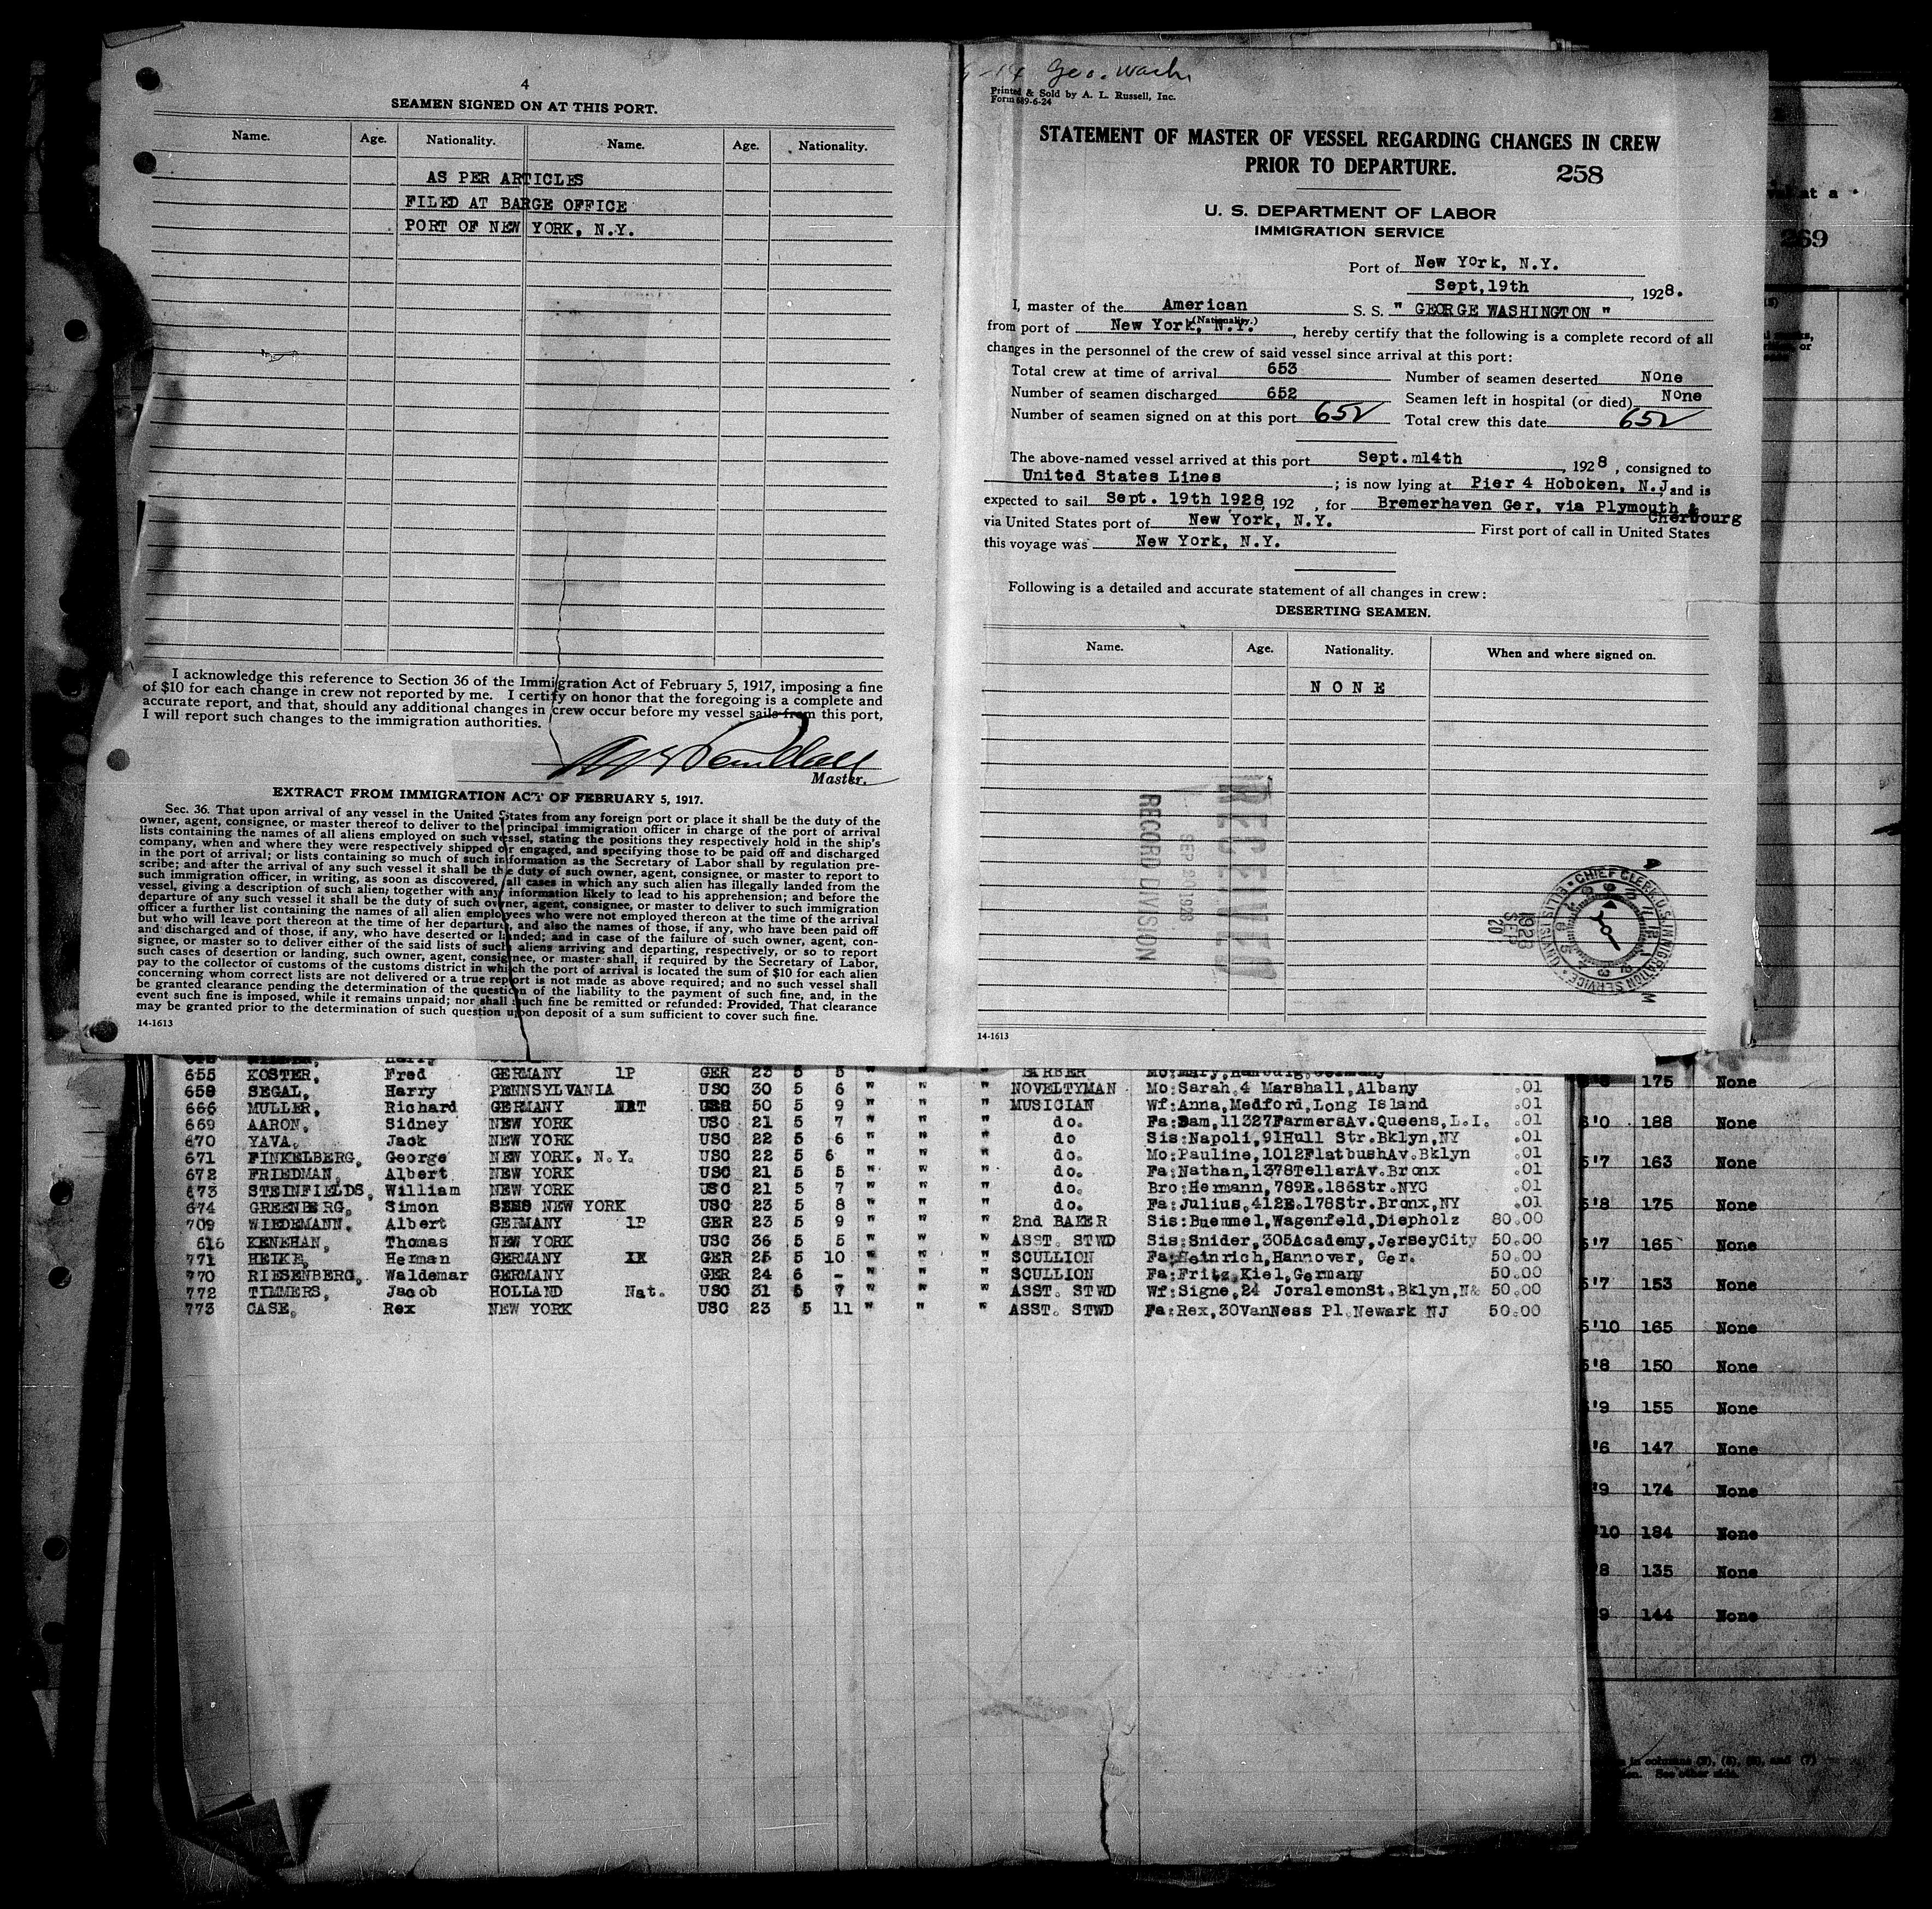 4
SEAMEN SIGNED ON AT THIS PORT.
Name. Age. Nationality. Name. Age. Nationality.
AS PER ARTICLES
FILED AT BARGE OFFICE
PORT OF NEW YORK, N.Y.
I acknowledge this reference to Section 36 of the Immigration Act of February 5, 1917, imposing a fine
of $10 for each change in crew not reported by me. I certify on honor that the foregoing is a complete and
accurate report, and that, should any additional changes in crew occur before my vessel sails from this port,
I will report such changes to the immigration authorities.
Master.
EXTRACT FROM IMMIGRATION ACT OF FEBRUARY 5, 1917.
Sec. 36. That upon arrival of any vessel in the United States from any foreign port or place it shall be the duty of the
owner, agent, consignee, or master thereof to deliver to the principal immigration officer in charge of the port of arrival
lists containing the names of all aliens employed on such vessel, stating the positions they respectively hold in the ship's
company, when and where they were respectively shipped or engaged, and specifying those to be paid off and discharged
in the port of arrival; or lists containing so much of such information as the Secretary of Labor shall by regulation pre-
scribe; and after the arrival of any such vessel it shall be the duty of such owner, agent, consignee, or master to report to
such immigration officer, in writing, as soon as discovered, all cases in which any such alien has illegally landed from the
vessel, giving a description of such alien, together with any information likely to lead to his apprehension; and before the
departure of any such vessel it shall be the duty of such owner, agent, consignee, or master to deliver to such immigration
officer a further list containing the names of all alien employees who were not employed thereon at the time of the arrival
but who will leave port thereon at the time of her departure, and also the names of those, if any, who have been paid off
and discharged and of those, if any, who have deserted or landed; and in case of the failure of such owner, agent, con-
signee, or master so to deliver either of the said lists of such aliens arriving and departing, respectively, or so to report
such cases of desertion or landing, such owner, agent, consignee, or master shall, if required by the Secretary of Labor,
pay to the collector of customs of the customs district in which the port of arrival is located the sum of $10 for each alien
concerning whom correct lists are not delivered or a true report is not made as above required; and no such vessel shall
be granted clearance pending the determination of the question of the liability to the payment of such fine, and, in the
event such fine is imposed, while it remains unpaid; nor shall such fine be remitted or refunded: Provided, That clearance
may be granted prior to the determination of such question upon deposit of a sum sufficient to cover such fine.
14-1613
Geo. Wash
Printed & Sold by A. L. Russell, Inc.
Form 689-6-24
STATEMENT OF MASTER OF VESSEL REGARDING CHANGES IN CREW
PRIOR TO DEPARTURE. 258
U. S. DEPARTMENT OF LABOR
IMMIGRATION SERVICE
Port of New York, N.Y.
Sept,19th, 1928.
I, master of the American S. S. " GEORGE WASHINGTON "
(Nationality.)
from port of New York, N.Y., hereby certify that the following is a complete record of all
changes in the personnel of the crew of said vessel since arrival at this port:
Total crew at time of arrival 653 Number of seamen deserted None
Number of seamen discharged 652 Seamen left in hospital (or died) None
Number of seamen signed on at this port 652 Total crew this date 652
The above-named vessel arrived at this port Sept.m14th, 1928, consigned to
United States Lines; is now lying at Pier 4 Hoboken, N.J, and is
expected to sail Sept. 19th 1928, 192 , for Bremerhaven Ger, via Plymouth &
Cherbourg
via United States port of New York, N.Y. First port of call in United States
this voyage was New York, N.Y.
Following is a detailed and accurate statement of all changes in crew:
DESERTING SEAMEN.
Name. Age. Nationality. When and where signed on.
N O N E
RECEIVED
SEP 1928
RECORD DIVISION
CHIEF CLERK U.S. IMMIGRATION SERVICE ELLIS ISLAND
1928
SEP
20
14-1613
655 KOSTER, Fred GERMANY 1P GER 23 5 5 " " " BARBER Mo:Mary,Hamburg,Germany
658 SEGAL, Harry PENNSYLVANIA USC 30 5 6 " " " NOVELTYMAN Mo:Sarah,4 Marshall,Albany .01
666 MULLER, Richard GERMANY USC 50 5 9 " " " MUSICIAN Wf:Anna,Medford,Long Island .01
669 AARON, Sidney NEW YORK USC 21 5 7 " " " do. Fa:Sam,11327FarmersAv.Queens,L.I. .01
670 YAVA, Jack NEW YORK USC 22 5 6 " " " do Sis:Napoli,91Hull Str.Bklyn,NY .01
671 FINKELBERG, George NEW YORK, N.Y. USC 22 5 6 " " " do. Mo:Pauline,1012FlatbushAv.Bklyn .01
672 FRIEDMAN, Albert NEW YORK USC 21 5 5 " " " do. Fa:Nathan,1378TellarAv.Bronx .01
673 STEINFIELDS, William NEW YORK USC 21 5 7 " " " do. Bro:Hermann,789E.186Str.NYC .01
674 GREENBERG, Simon NEW YORK USC 23 5 8 " " " do. Fa:Julius,412E.178Str.Bronx,NY .01
709 WIEDEMANN, Albert GERMANY 1P GER 23 5 9 " " " 2nd BAKER Sis:Buemmel,Wagenfeld,Diepholz 80.00
616 KENEHAN, Thomas NEW YORK USC 36 5 5 " " " ASST. STWD Sis:Snider,305Academy,JerseyCity 50.00
771 HEIKE, Herman GERMANY GER 25 5 10 " " " SCULLION Fa:Heinrich,Hannover, Ger. 50.00
770 RIESENBERG, Waldemar GERMANY GER 24 6 - " " " SCULLION Fa:Fritz,Kiel,Germany 50.00
772 TIMMERS, Jacob HOLLAND Nat. USC 31 5 7 " " " ASST. STWD Wf:Signe,24 JoralemonSt.Bklyn, 50.00
773 CASE, Rex NEW YORK USC 23 5 11 " " " ASST. STWD Fa:Rex,30VanNess Pl.Newark NJ 50.00
at a
269
175 None
5'0 188 None
5'7 163 None
5'8 175 None
5'7 165 None
5'7 153 None
5'10 165 None
5'8 150 None
'9 155 None
'6 147 None
'9 174 None
'10 184 None
'8 135 None
'9 144 None
in columns (2), (5), (6), and (7)
See other side.